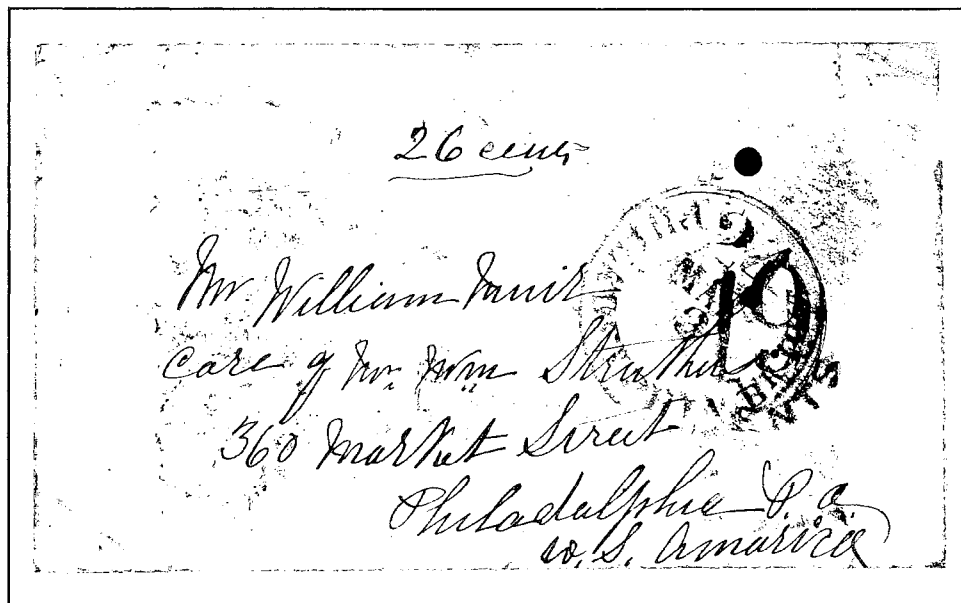 26 cents
Mr William Muir
Care of Mr. Wm Struthers
360 Market Street
Philadalphia P.a.
U.S. Amarica
19